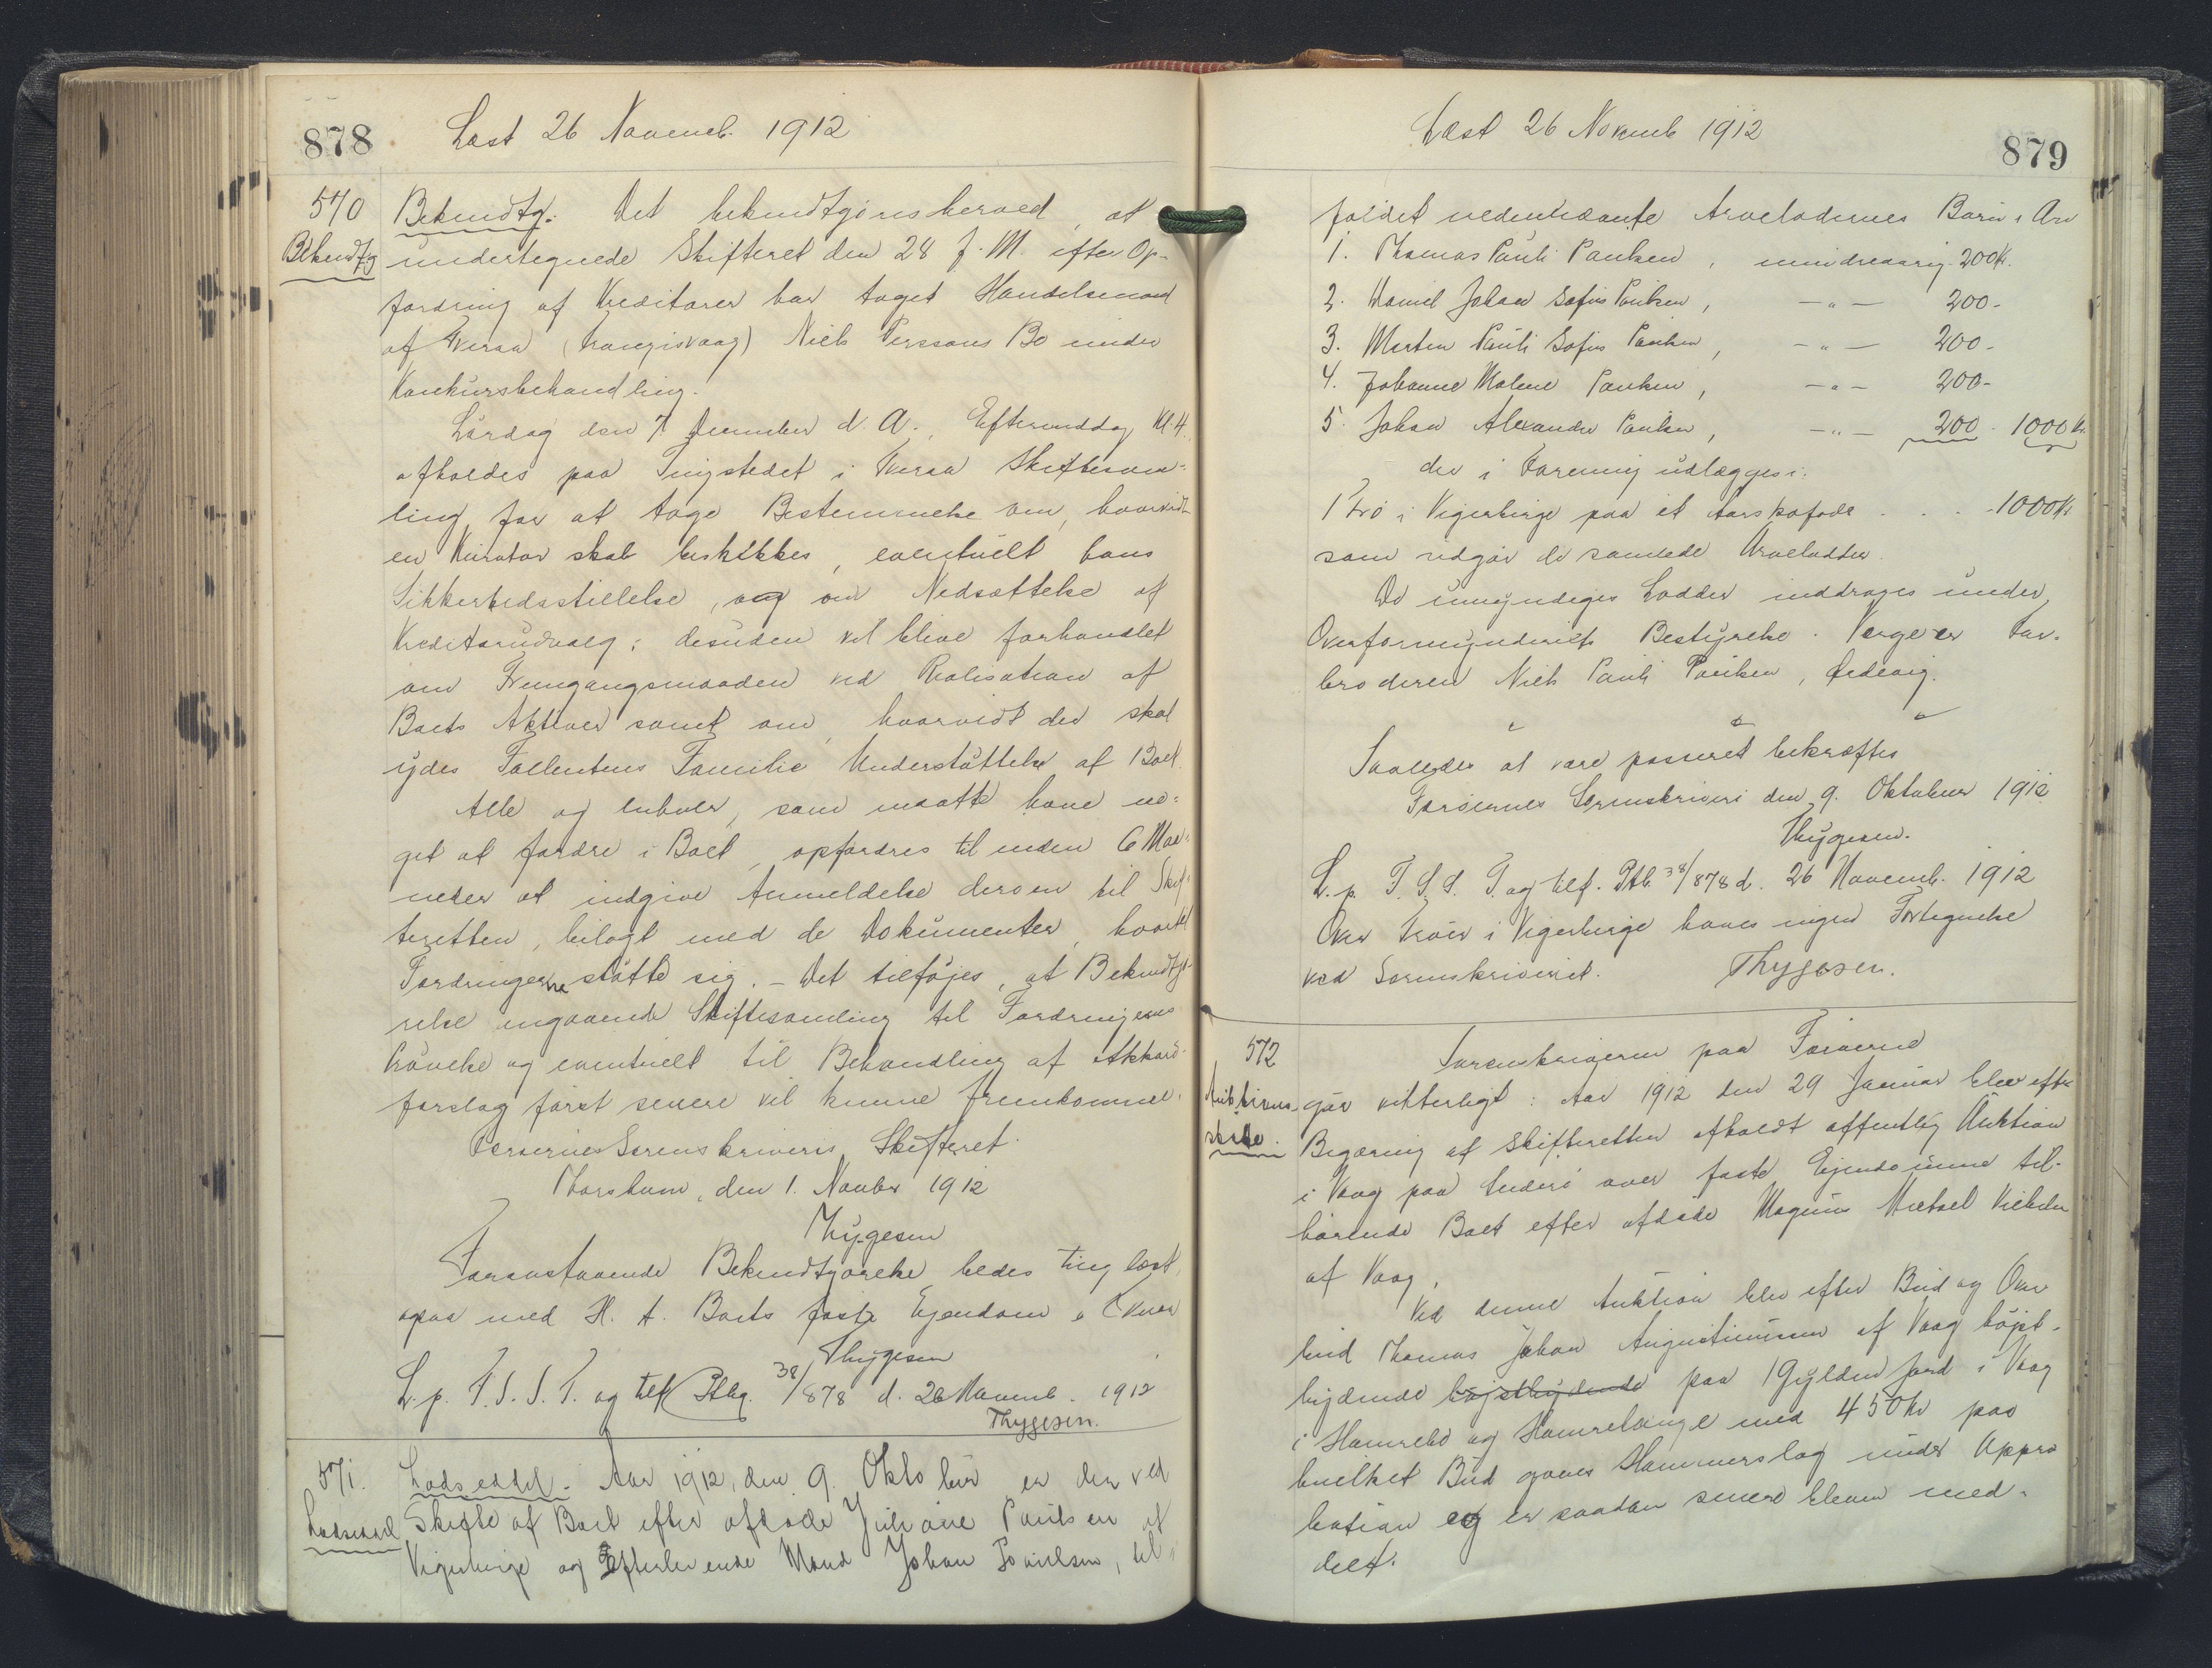 878
Læst 26 Novemb. 1912
570
Bekendtg
Bekendtg. Det bekendtgöres herved, at
undertegnede Skifteret den 28 f. M. efter Op-
fordring af Kreditorer har taget Handelsmand
af Tveraa (Trangisvaag) Niels Perssons Bo under
Konkursbehandling.
Lördag den 7 December d. A., Eftermiddag Kl. 4
afholdes paa Tingstedet i Tveraa Skiftesam-
ling for at tage Bestemmelse om, hvorvidt
en Kurator skal beskikkes, eventuelt hans
Sikkerhedsstillelse, og om Nedsættelse af
Kreditorudvalg; desuden vil blive forhandlet
om Fremgangsmaaden ved Realisation af
Boets Aktiver samt om, hvorvidt der skal
ydes Fallentens Familie Understöttelse af Boet.
Alle og enhver, som maatte have no-
get at fordre i Boet, opfordres til inden 6 Maa-
neder at indgive Anmeldelse derom til Skif-
teretten, bilagt med de Dokumenter, hvortil
Fordringerne stötte sig. - Det tilföjes, at Bekendtgö-
relse angaaende Skiftesamling til Fordringernes
Prövelse og eventuelt til Behandling af Akkord-
forslag först senere vil kunne fremkomme.
Færøernes Sorenskriveris Skifteret
Thorshavn, den 1. Novbr 1912
Thygesen
Foranstaaende Bekendtgörelse bedes tinglæst
ogsaa med H. t. Boets faste Ejendom i Tveraa
Thygesen
L. p. F. S. S. T. og tilf Ptbg. 38/878 d. 26 Novemb. 1912
Thygesen.
571.
Lodseddel
Lodseddel. Aar 1912, den 9. Oktober er der ved
Skifte af Boet efter afdøde Juliane Poulsen af
Vigerbirge og efterlevende Mand Johan Poulsen, til
Læst 26 Novemb 1912
879
faldet nedennævnte Arveladernes Börn i Arv
1. Thomas Pauli Poulsen, mindreaarig 200 Kr.
2. Daniel Johan Sofus Poulsen, -"- 200-
3. Morten Pauli Sofus Poulsen, -"- 200-
4. Johanne Malene Poulsen, -"- 200-
5. Johan Alexander Poulsen, -"- 200 - 1000 Kr.
der i Forening udlægges i:
1 Trö i Vigerbirge paa et Aarskofode . . . 1000 Kr
som udgör de samlede Arvelodder.
De umyndiges Lodder inddrages under
Overformynderiets Bestyrelse. Værge er Far-
broderen Niels Pauli Poulsen, Ørdevig.
" " "
Saaledes at være passeret bekræftes
Færöernes Sorenskriveri den 9. Oktober 1912
Thygesen.
L. p. F. S. S. T. og tilf. Ptb. 38/878 d. 26 Novemb. 1912
Over Tröer i Vigerbirge haves ingen Fortegnelse
ved Sorenskriveriet. Thygesen.
572
Auktions-
skøde.
Sorenskriveren paa Færöerne
gör vitterligt: Aar 1912 den 29 Januar blev efter
Begæring af Skifteretten afholdt offentlig Auktion
i Vaag paa Suderö over faste Ejendomme til-
hörende Boet efter afdöde Magnus Mikael Vilhelm
af Vaag.
Ved denne Auktion blev efter Bud og Over
bud Thomas Johan Augustinussen af Vaag höjst-
bydende höjstbydende paa 1 Gylden Jord i Vaag
i Hamrebö og Hamrelänge med 450 Kr paa
hvilket Bud gaves Hammerslag under Appro
bation og er saadan senere bleven med-
delt.